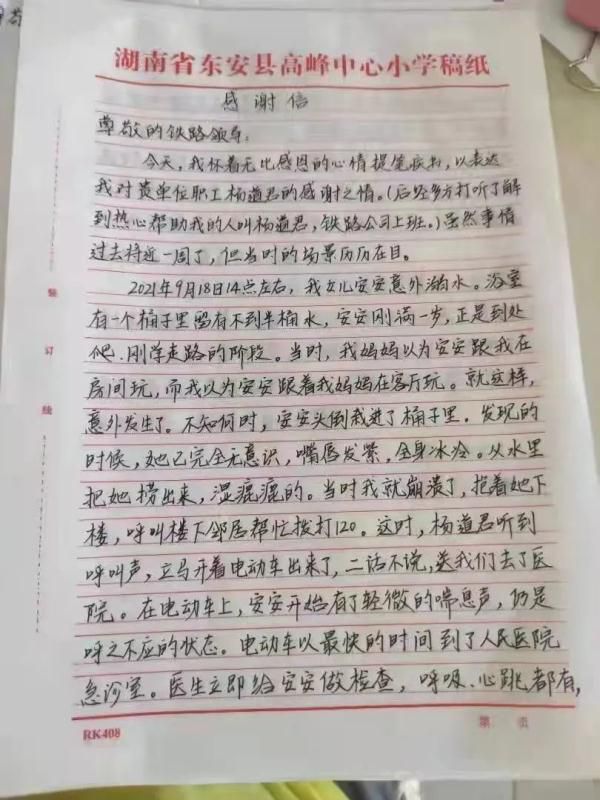 湖南省东安县高峰中心小学稿纸
感谢信
尊敬的铁路领导:
今天,我怀着无比感恩的心情提笔疾书,以表达
我对贵单位职工杨道君的感谢之情。(后经多方打听了解
到热心帮助我的人叫杨道君,铁路公司上班。)虽然事情
过去将近一周了,但当时的场景历历在目。
2021年9月18日14点左右,我女儿安安意外溺水。浴室
有一个桶子里留有不到半桶水,安安刚满一岁,正是到处
爬、刚学走路的阶段。当时,我妈妈以为安安跟我在
房间玩,而我以为安安跟着我妈妈在客厅玩。就这样,
意外发生了。不知何时,安安头倒栽进了桶子里。发现的
时候,她已完全无意识,嘴唇发紫,全身冰冷。从水里
把她捞出来,湿漉漉的。当时我就崩溃了,抱着她下
楼,呼叫楼下邻居帮忙拨打120。这时,杨道君听到
呼叫声,立马开着电动车出来了,二话不说,送我们去了医
院。在电动车上,安安开始有了轻微的喘息声,仍是
呼之不应的状态。电动车以最快的时间到了人民医院
急诊室。医生立即给安安做检查,呼吸、心跳都有,
装
订
线
RK408
第 页